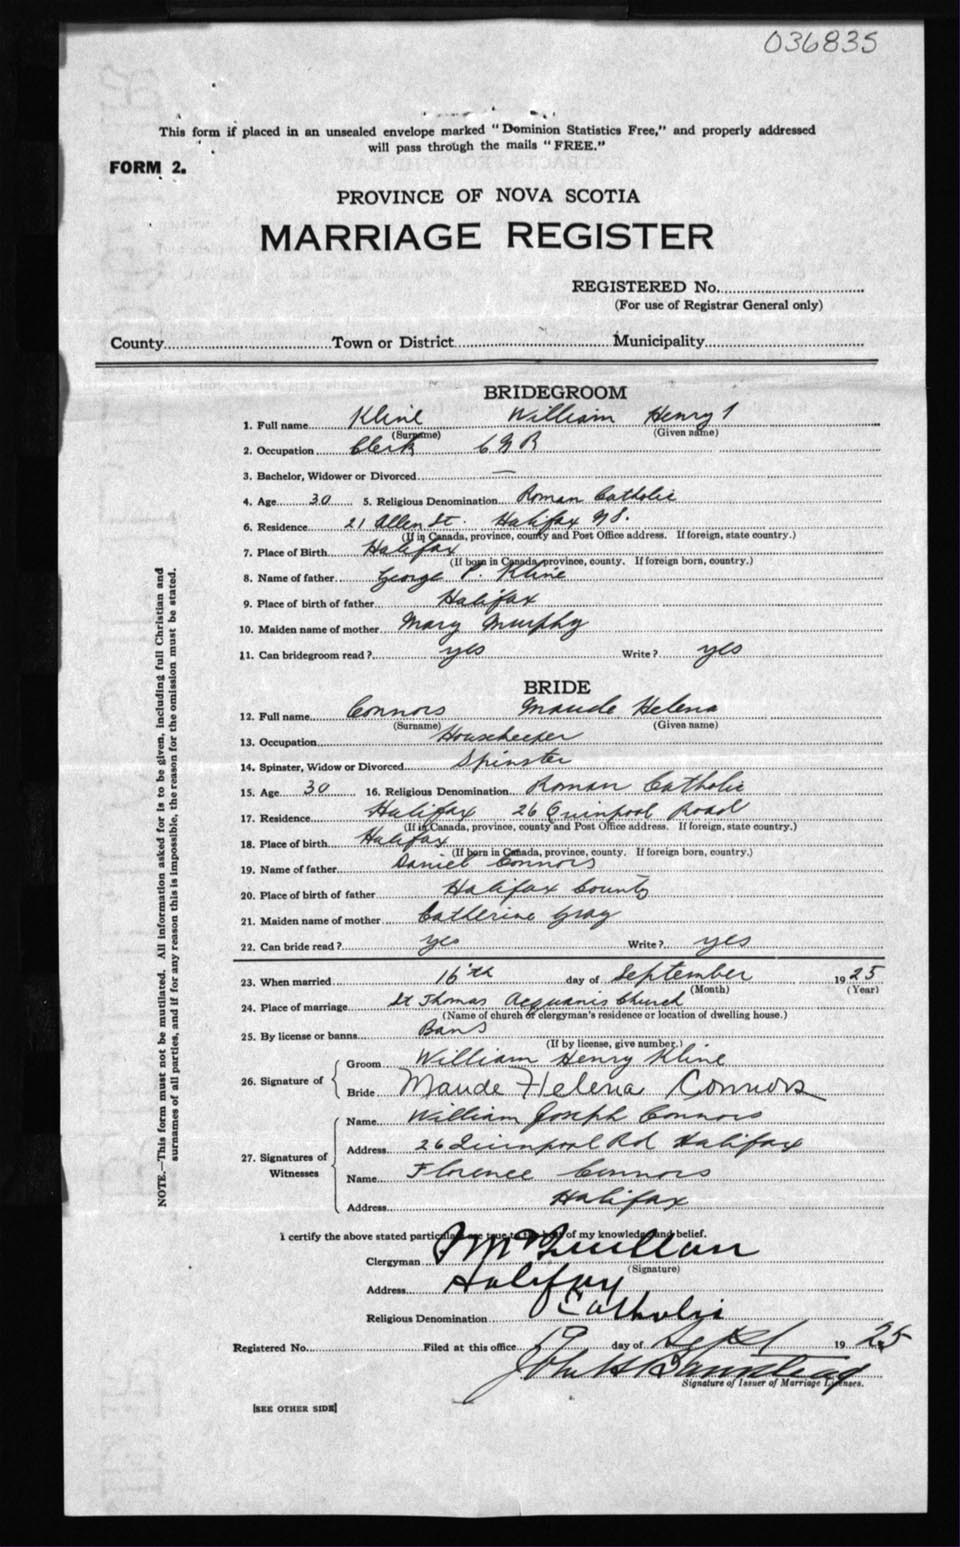 036835
This form if placed in an unsealed envelope marked "Dominion Statistics Free," and properly addressed
will pass through the mails "FREE."
FORM 2.
PROVINCE OF NOVA SCOTIA
MARRIAGE REGISTER
REGISTERED No.
(For use of Registrar General only)
County Town or District Municipality
BRIDEGROOM
1. Full name Kline William Henry
(Surname) (Given name)
2. Occupation Clerk C G R
3. Bachelor, Widower or Divorced —
4. Age 30 5. Religious Denomination Roman Catholic
6. Residence 21 Allen St. Halifax N S.
(If in Canada, province, county and Post Office address. If foreign, state country.)
7. Place of Birth Halifax
(If born in Canada, province, county. If foreign born, country.)
8. Name of father George P. Kline
9. Place of birth of father Halifax
10. Maiden name of mother Mary Murphy
11. Can bridegroom read? yes Write? yes
BRIDE
12. Full name Connors Maude Helena
(Surname) (Given name)
13. Occupation Housekeeper
14. Spinster, Widow or Divorced Spinster
15. Age 30 16. Religious Denomination Roman Catholic
17. Residence Halifax 26 Quinpool Road
(If in Canada, province, county and Post Office address. If foreign, state country.)
18. Place of birth Halifax
(If born in Canada, province, county. If foreign born, country.)
19. Name of father Daniel Connors
20. Place of birth of father Halifax County
21. Maiden name of mother Catherine Gray
22. Can bride read? yes Write? yes
23. When married 16th day of September 1925
(Month) (Year)
24. Place of marriage St Thomas Acquanis Church
(Name of church or clergyman's residence or location of dwelling house.)
25. By license or banns Bans
(If by license, give number.)
26. Signature of Groom William Henry Kline
Bride Maude Helena Connors
27. Signatures of Witnesses Name William Joseph Connors
Address 26 Quinpool Rd Halifax
Name Florence Connors
Address Halifax
I certify the above stated particulars are true to the best of my knowledge and belief.
Clergyman McQuillan
(Signature)
Address Halifax
Religious Denomination Catholic
Registered No. Filed at this office 19 day of Sept 1925
John H
Signature of Issuer of Marriage Licenses.
[SEE OTHER SIDE]
NOTE.—This form must not be mutilated. All information asked for is to be given, including full Christian and
surnames of all parties, and if for any reason this is impossible, the reason for the omission must be stated.